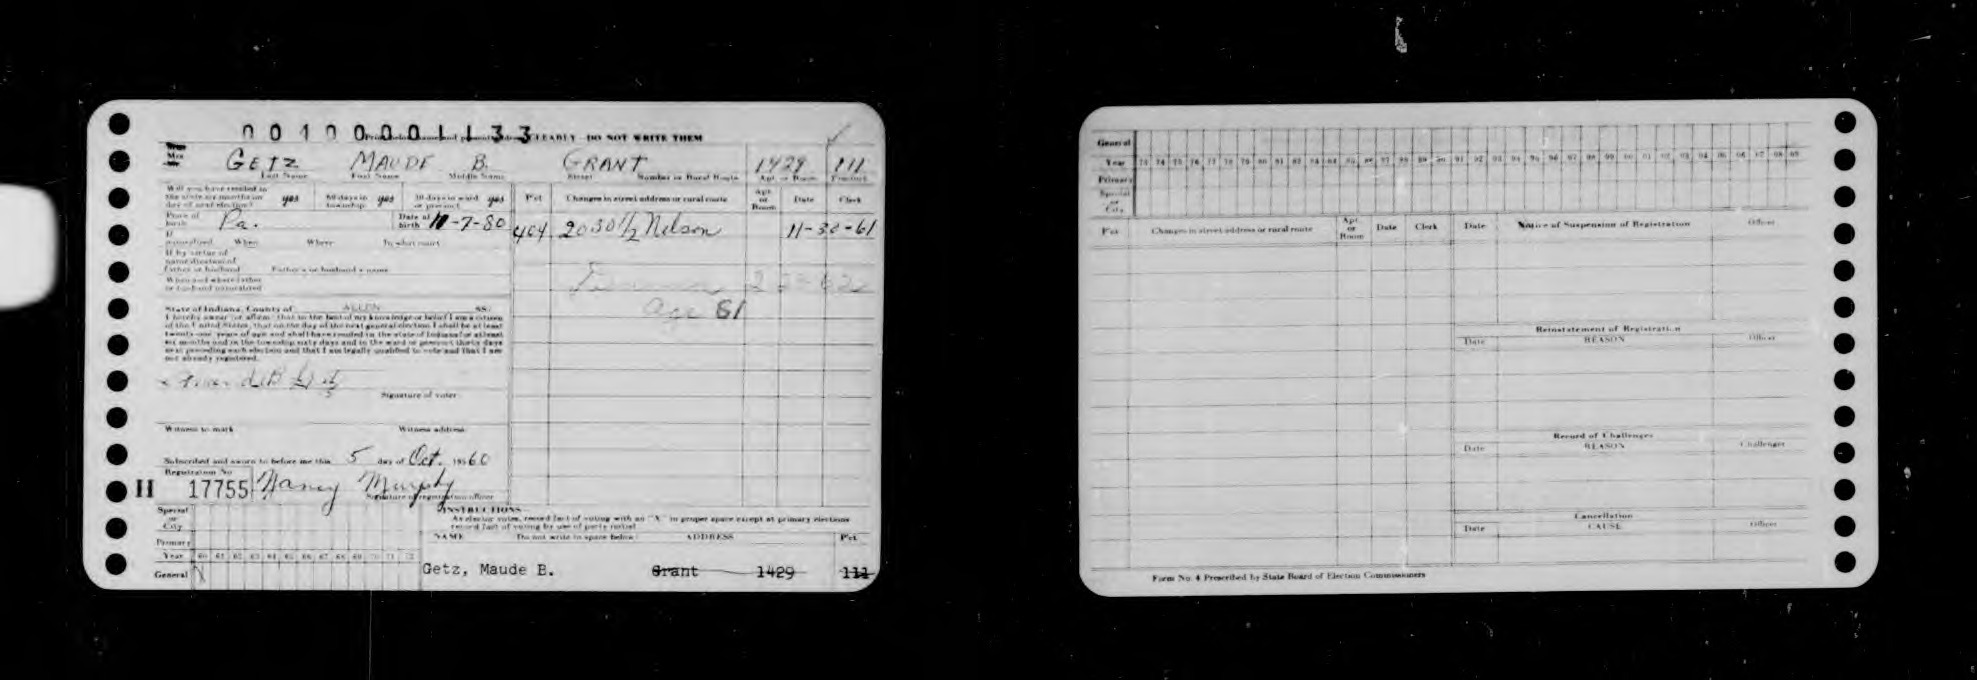 00100001133 CLEARLY - DO NOT WRITE THEM
Mrs GETZ MAUDE B. GRANT 1429 111
Last Name First Name Middle Name Street Number or Rural Route Apt. or Room Precinct
Will you have resided in the state six months on day of next election? yes 60 days in township yes 30 days in ward or precinct yes
Pct Changes in street address or rural route Apt. or Room Date Clerk
Place of birth Pa. Date of birth -7-80
464 2030 1/2 Nelson 11-30-61
If naturalized When Where In what court
If by virtue of naturalization of father or husband Father's or husband's name
When and where father or husband naturalized
age 81
State of Indiana, County of ALLEN SS:
I hereby swear (or affirm) that to the best of my knowledge or belief I am a citizen
of the United States, that on the day of the next general election I shall be at least
twenty-one years of age and shall have resided in the state of Indiana for at least
six months and in the township sixty days and in the ward or precinct thirty days
next preceding such election and that I am legally qualified to vote and that I am
not already registered.
Signature of voter
Witness to mark Witness address
Subscribed and sworn to before me this 5 day of Oct. 1960
Registration No
H 17755 Nancy Murphy
Signature of registration officer
INSTRUCTIONS
As elector votes, record fact of voting with an "X" in proper space except at primary elections
record fact of voting by use of party initial
Special or City
NAME Do not write in space below ADDRESS Pct
Primary
Year 60 61 62 63 64 65 66 67 68 69 70 71 72
General X
Getz, Maude B. Grant 1429 111
General
Year 73 74 75 76 77 78 79 80 81 82 83 84 85 86 87 88 89 90 91 92 93 94 95 96 97 98 99 00 01 02 03 04 05 06 07 08 09
Primary
Special or City
Pct Changes in street address or rural route Apt. or Room Date Clerk Date Notice of Suspension of Registration Officer
Reinstatement of Registration
Date REASON Officer
Record of Challenges
Date REASON Challenger
Cancellation
Date CAUSE Officer
Form No. 4 Prescribed by State Board of Election Commissioners